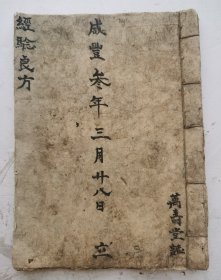 萬壽堂記
咸豐叁年三月廿八日立
經驗良方